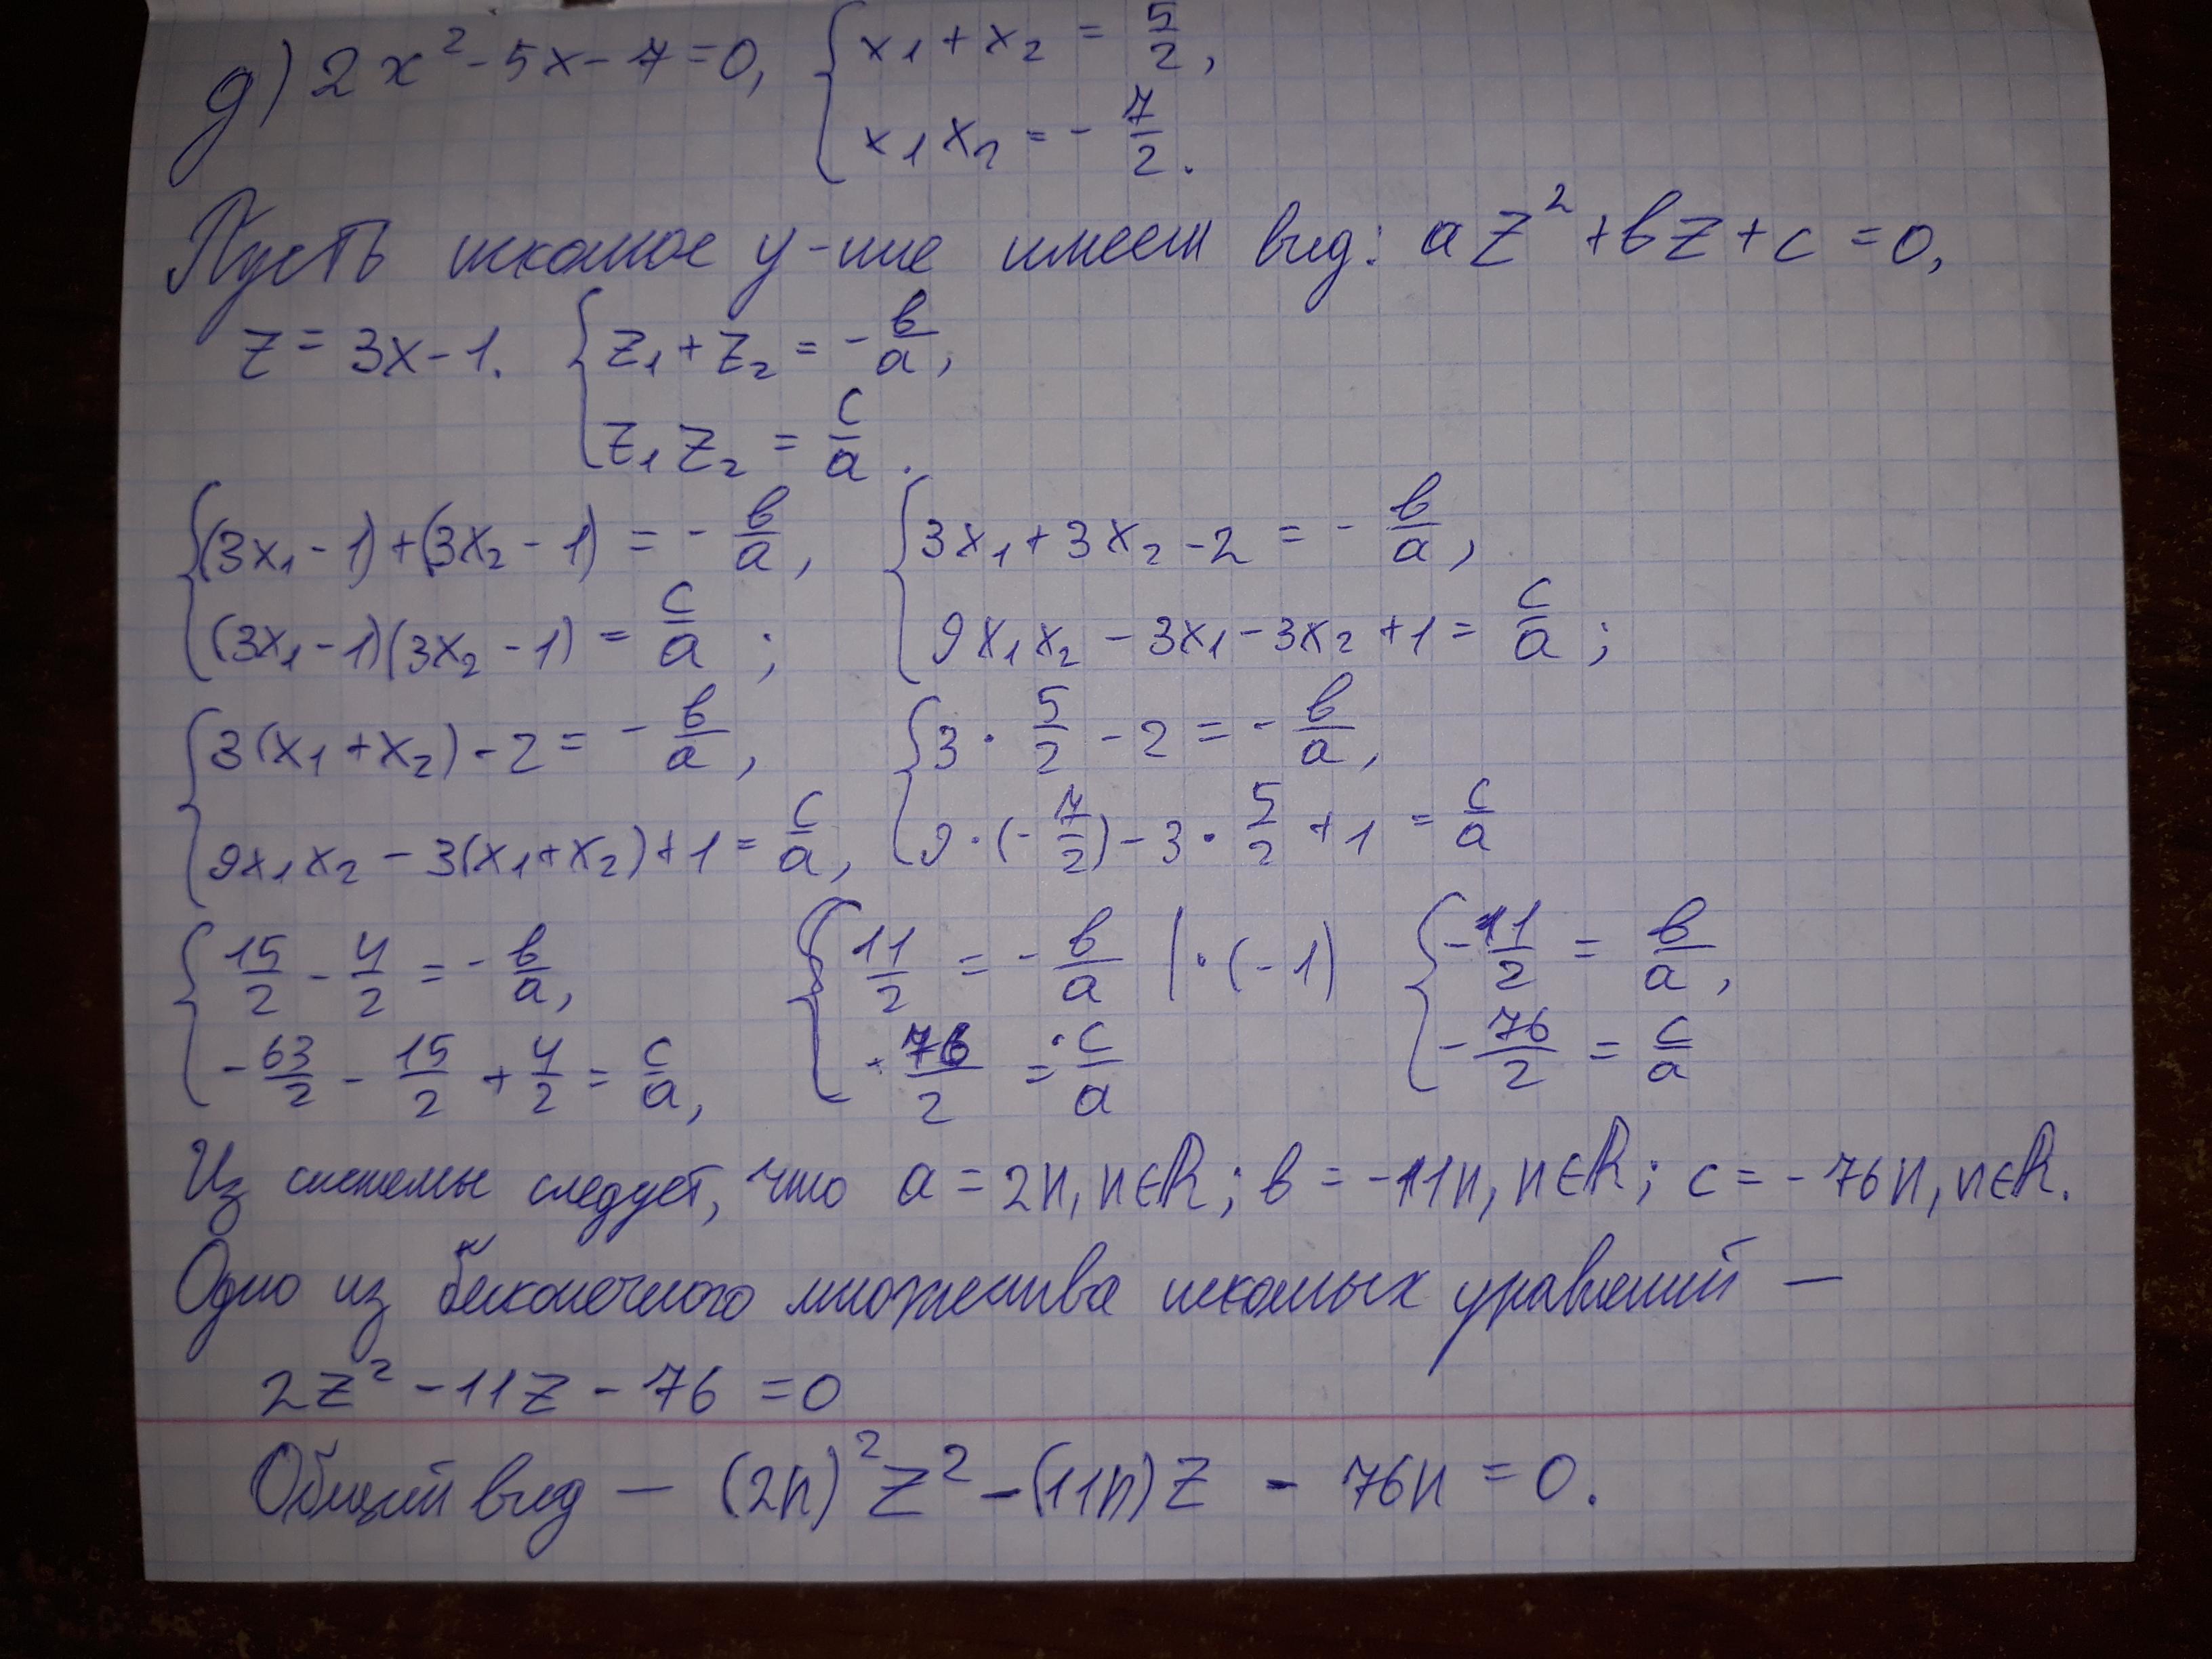 д) 2x² - 5x - 7 = 0, { x₁ + x₂ = 5/2,
x₁x₂ = - 7/2.
Пусть искомое у-ние имеет вид: az² + bz + c = 0,
z = 3x - 1. { z₁ + z₂ = - b/a,
z₁z₂ = c/a.
{ (3x₁ - 1) + (3x₂ - 1) = - b/a, { 3x₁ + 3x₂ - 2 = - b/a,
(3x₁ - 1)(3x₂ - 1) = c/a ; 9x₁x₂ - 3x₁ - 3x₂ + 1 = c/a ;
{ 3(x₁ + x₂) - 2 = - b/a, { 3 · 5/2 - 2 = - b/a,
9x₁x₂ - 3(x₁ + x₂) + 1 = c/a, 9 · (- 7/2) - 3 · 5/2 + 1 = c/a
{ 15/2 - 4/2 = - b/a, { 11/2 = - b/a | · (-1) { - 11/2 = b/a,
- 63/2 - 15/2 + 4/2 = c/a, - 76/2 = c/a - 76/2 = c/a
Из системы следует, что a = 2n, n∈R ; b = -11n, n∈R ; c = - 76n, n∈R.
Одно из бесконечного множества искомых уравнений —
2z² - 11z - 76 = 0
Общий вид — (2n)²z² - (11n)z - 76n = 0.